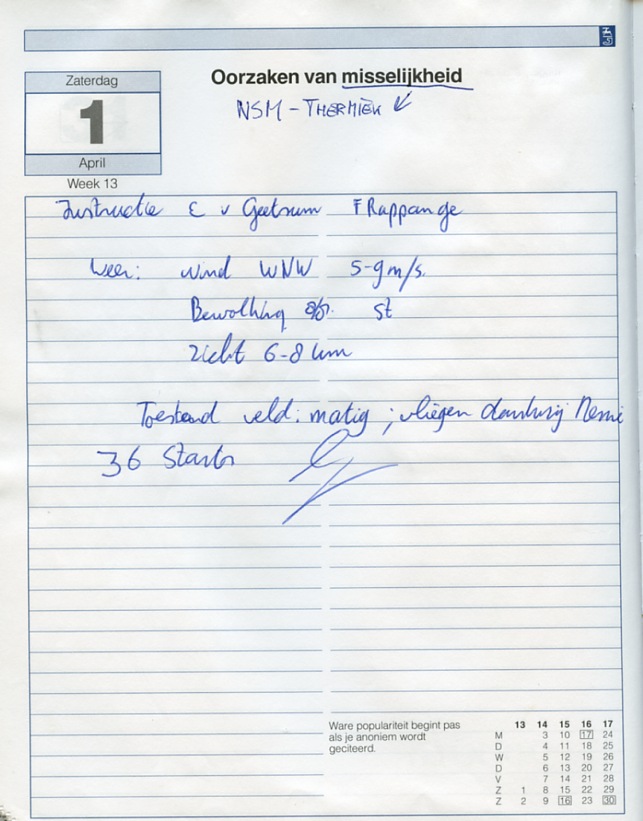 Zaterdag
1
April
Week 13
Oorzaken van misselijkheid
NSM - THERMIEK
Instructie E v Geetrum F Rappange
Weer: wind WNW 5-9 m/s.
Bewolking st
zicht 6-8 km
Toestand veld: matig ; vliegen dankzij
36 Starts
Ware populariteit begint pas
als je anoniem wordt
geciteerd.
13 14 15 16 17
M 3 10 17 24
D 4 11 18 25
W 5 12 19 26
D 6 13 20 27
V 7 14 21 28
Z 1 8 15 22 29
Z 2 9 16 23 30